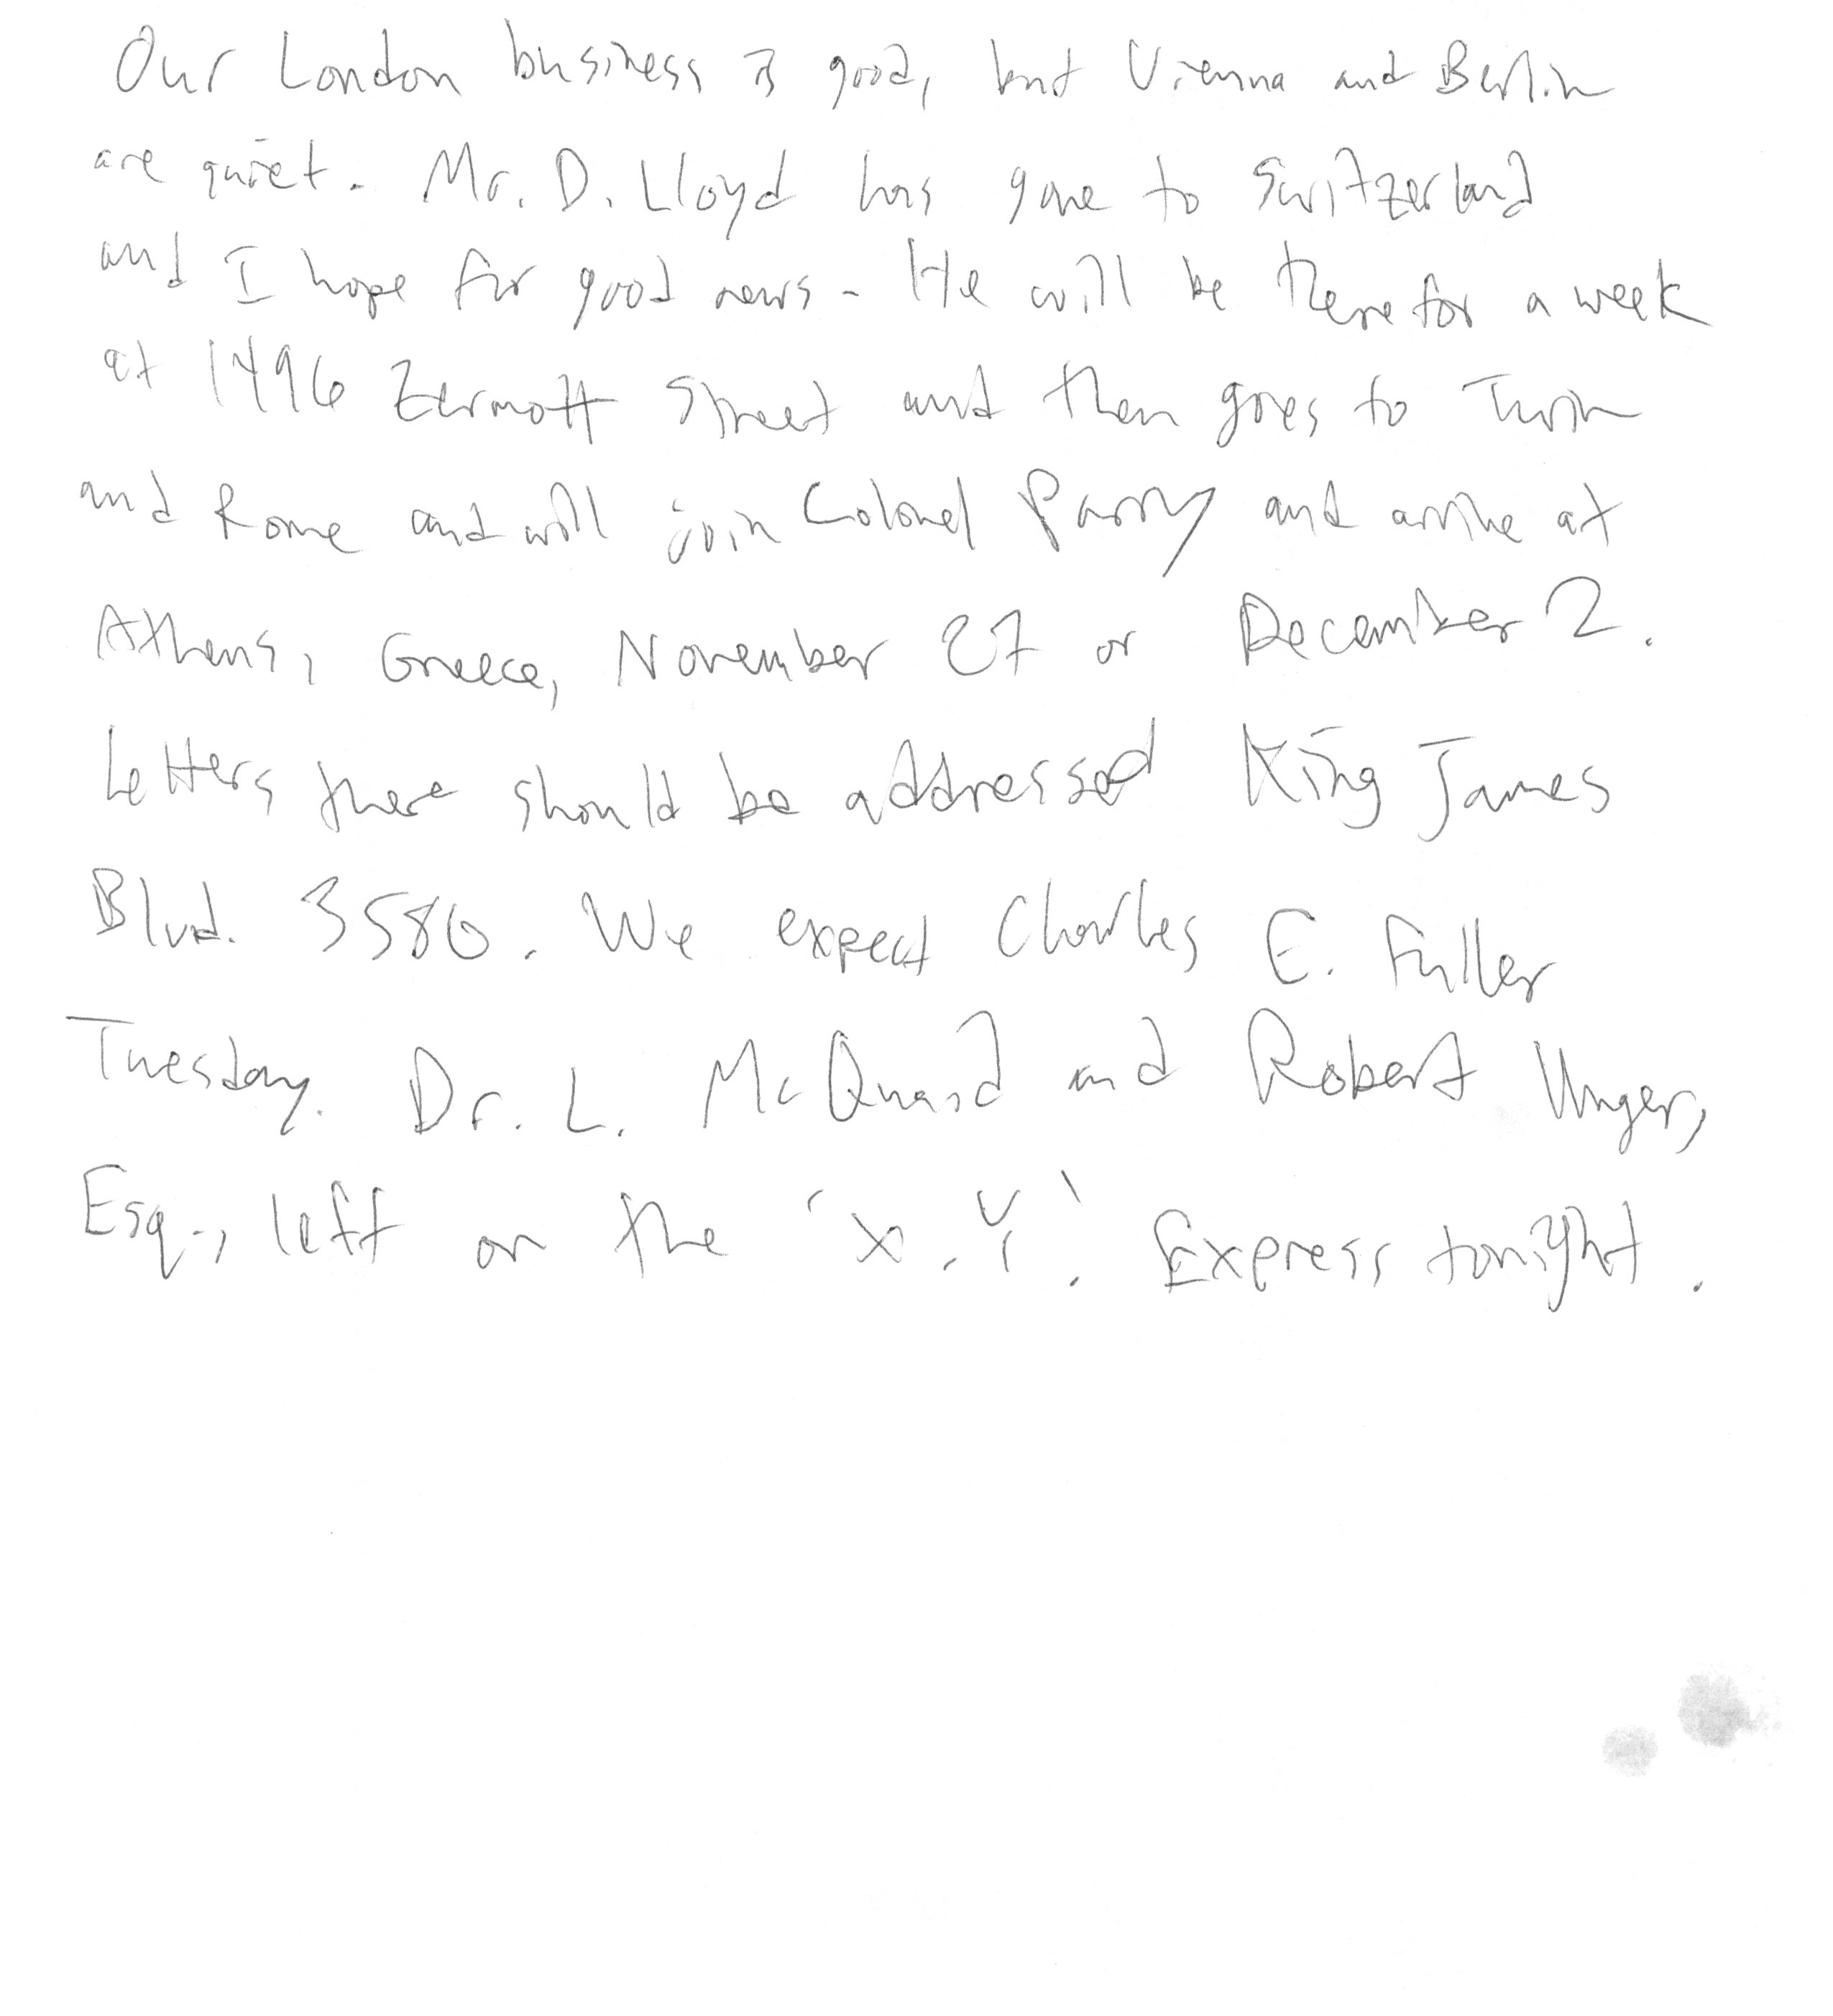 Our London business is good, but Vienna and Berlin
are quiet. Mr. D. Lloyd has gone to Switzerland
and I hope for good news. He will be there for a week
at 1496 Zermott Street and then goes to Turin
and Rome and will join Colonel Parry and arrive at
Athens, Greece, November 27 or December 2.
Letters there should be addressed King James
Blvd. 3580. We expect Charles E. Fuller
Tuesday. Dr. L. McQuaid and Robert Unger,
Esq., left on the 'X.Y.' Express tonight.